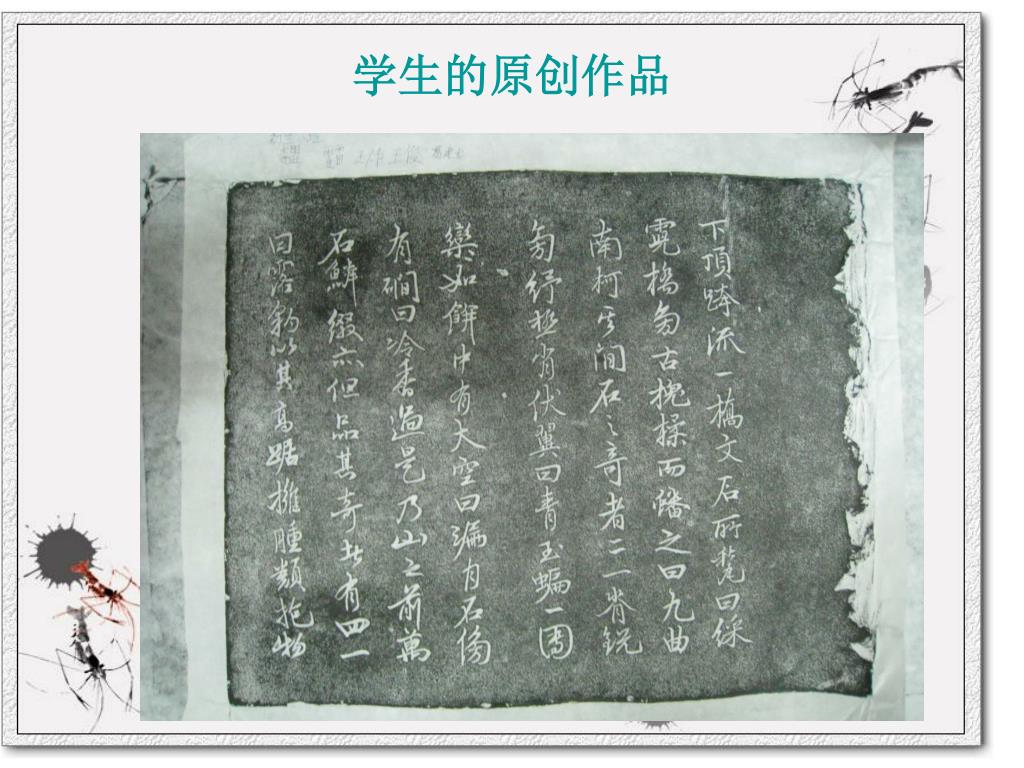 学生的原创作品
下頂跨流一橋文石所甃曰綵
霓橋旁古槐揉而蟠之曰九曲
南柯其間石之奇者二一脊銳
旁紓極肖伏翼曰青玉蝠一團
欒如餅中有大空曰漏月石傍
有磵曰冷香過是乃山之前萬
石鱗綴亦但品其奇者有四一
曰露豹以其高踞擁腫類抱物